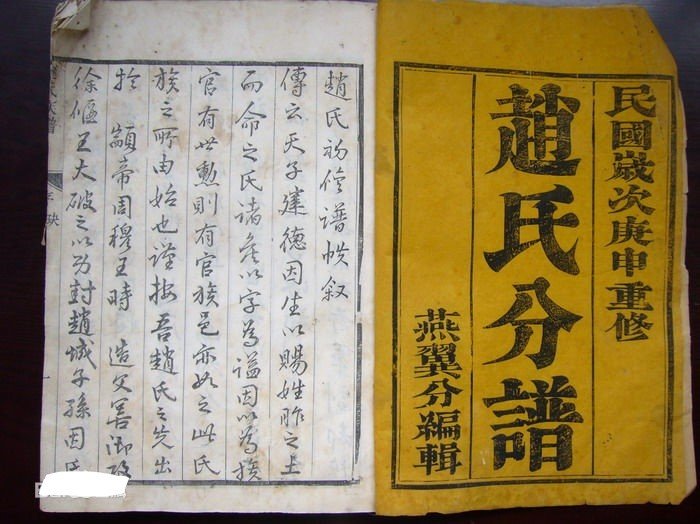 民國歲次庚申重修
趙氏分譜
燕翼分編輯
趙氏初修譜帙叙
傳云天子建德因生以賜姓胙之土
而命之氏諸矦以字為謚因以為族
官有世勲則有官族邑亦如之此氏
族之所由始也謹按吾趙氏之先出
於 顓帝周穆王時 造父善御
徐偃王大破之以功封趙城子孫因氏